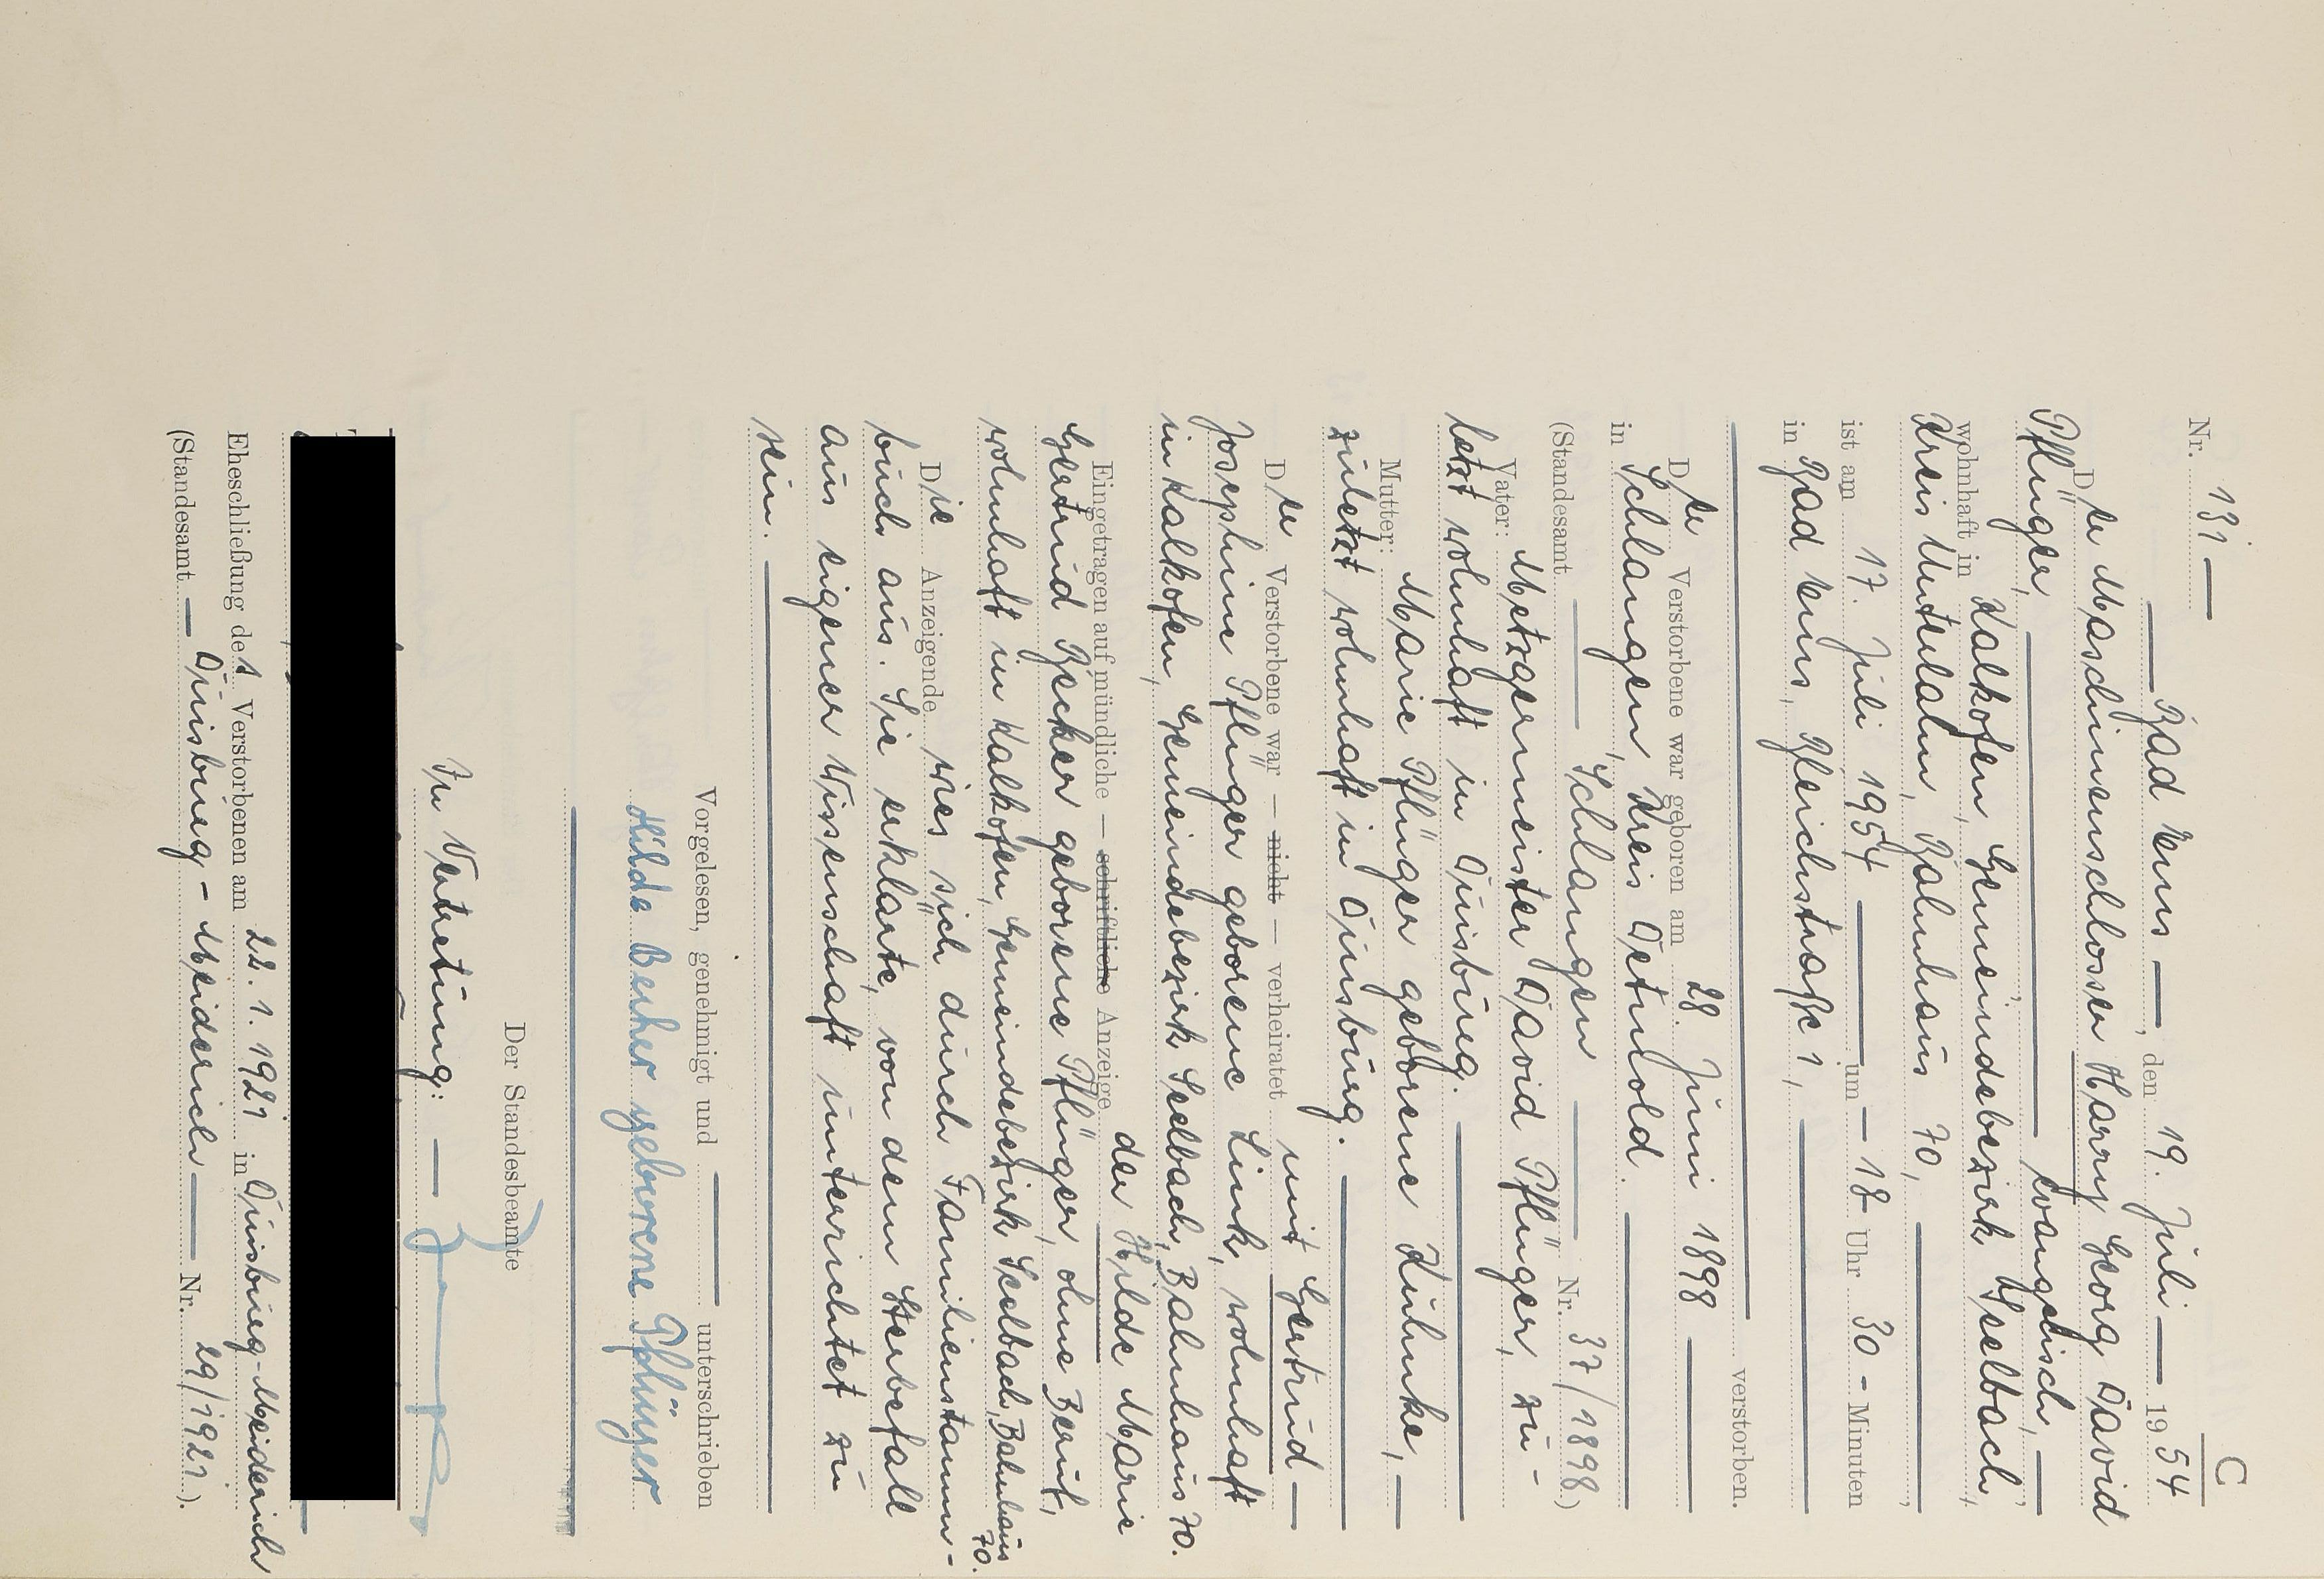 C
Nr. 131 —
— Bad Ems —, den 19. Juli — 1954
Der Maschinenschlosser Harry Georg David
Pflüger, — evangelisch, —
wohnhaft in Kalkofen, Gemeindebezirk Seelbach,
Kreis Unterlahn, Bahnhaus 70, —,
ist am 17. Juli 1954 — um — 18 Uhr 30 - Minuten
in Bad Ems, Bleichstraße 1, —
— verstorben.
Der Verstorbene war geboren am 28. Juni 1898 —
in Schlangen, Kreis Detmold. —
(Standesamt — Schlangen — Nr. 37/1898.)
Vater: Metzgermeister David Pflüger, zu-
letzt wohnhaft in Duisburg. —
Mutter: Marie Pflüger geborene Kuhnke, —
zuletzt wohnhaft in Duisburg. —
Der Verstorbene war — nicht — verheiratet mit Gertrud —
Josephine Pflüger geborene Link, wohnhaft
in Kalkofen, Gemeindebezirk Seelbach, Bahnhaus 70.
Eingetragen auf mündliche — schriftliche Anzeige der Hilde Marie
Gertrud Becker geborene Pflüger, ohne Beruf,
wohnhaft in Kalkofen, Gemeindebezirk Seelbach, Bahnhaus 70.
Die Anzeigende wies sich durch Familienstamm-
buch aus. Sie erklärte, von dem Sterbefall
aus eigener Wissenschaft unterrichtet zu
sein. —
Vorgelesen, genehmigt und — unterschrieben
Hilde Becker geborene Pflüger
Der Standesbeamte
In Vertretung: —
Eheschließung des Verstorbenen am 22. 1. 1921 in Duisburg-Meiderich
(Standesamt — Duisburg - Meiderich — Nr. 29/1921.)